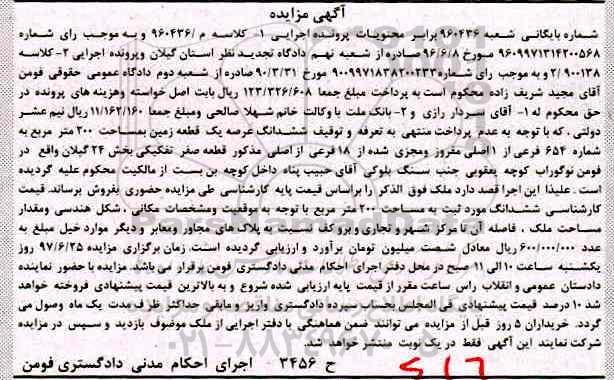 آگهی مزایده
شماره بایگانی شعبه ۹۶۰۴۳۶ برابر محتویات پرونده اجرایی ۱- کلاسه م /۹۶۰۴۳۶ و به موجب رای شماره
۹۶۰۹۹۷۱۳۱۴۲۰۰۵۶۸ مورخ ۹۶/۶/۸ صادره از شعبه نهم دادگاه تجدید نظر استان گیلان وپرونده اجرایی ۲- کلاسه
۲/۹۰۰۱۳۸ و به موجب رای شماره ۹۰۰۹۹۷۱۸۳۸۲۰۰۲۳۳ مورخ ۹۰/۳/۳۱ صادره از شعبه دوم دادگاه عمومی حقوقی فومن
آقای مجید شریف زاده محکوم است به پرداخت مبلغ جمعا ۱۲۳/۳۲۶/۶۰۸ ریال بابت اصل خواسته وهزینه های پرونده در
حق محکوم له ۱- آقای سردار رازی و ۲- بانک ملت با وکالت خانم شهلا صالحی ومبلغ جمعا ۱۱/۱۶۲/۱۶۰ ریال نیم عشر
دولتی ، که با توجه به عدم پرداخت منتهی به تعرفه و توقیف ششدانگ عرصه یک قطعه زمین بمساحت ۲۰۰ متر مربع به
شماره ۶۵۴ فرعی از ۱ اصلی مفروز ومجزی شده از ۱۸ فرعی از اصلی مذکور قطعه صفر تفکیکی بخش ۲۴ گیلان واقع در
فومن نوگوراب کوچه یعقوبی جنب سنگ بلوکی آقای حبیب پناه داخل کوچه بن بست از مالکیت محکوم علیه گردیده
است . علیذا این اجرا قصد دارد ملک فوق الذکر را براساس قیمت پایه کارشناسی طی مزایده حضوری بفروش برساند. قیمت
کارشناسی ششدانگ مورد ثبت به مساحت ۲۰۰ متر مربع با توجه به موقعیت ومشخصات مکانی ، شکل هندسی ومقدار
مساحت ملک ، فاصله آن تا مرکز شهر و تجاری و بر و کف نسبت به پلاک های مجاور ومعابر و دیگر موارد خیل مبلغ به
عدد ۶۰۰/۰۰۰/۰۰۰ ریال معادل شصت میلیون تومان برآورد و ارزیابی گردیده است. زمان برگزاری مزایده ۹۷/۶/۲۵ روز
یکشنبه ساعت ۱۰ الی ۱۱ صبح در محل دفتر اجرای احکام مدنی دادگستری فومن برقرار می باشد. مزایده با حضور نماینده
دادستان عمومی و انقلاب راس ساعت مقرر از قیمت پایه ارزیابی شده شروع و به بالاترین قیمت پیشنهادی فروخته خواهد
شد ۱۰ درصد قیمت پیشنهادی فی المجلس بحساب سپرده دادگستری واریز و مابقی حداکثر ظرف مدت یک ماه وصول می
گردد. خریداران ۵ روز قبل از مزایده می توانند ضمن هماهنگی با دفتر اجرایی از ملک موضوف بازدید و سپس در مزایده
شرکت نمایند این آگهی فقط در یک نوبت منتشر خواهد شد.
ح ۳۴۵۶ - اجرای احکام مدنی دادگستری فومن